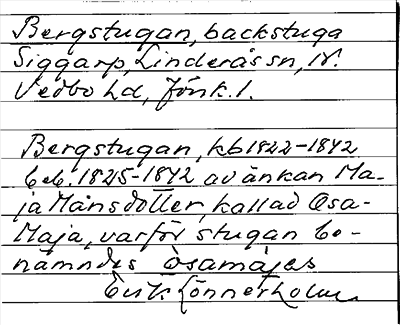 Bergstugan, backstuga
Siggarp, Linderås sn, N.
Vedbo hd, Jönk. l.
Bergstugan, kb 1822-1842
beb. 1825-1842 av änkan Ma-
ja Månsdotter, kallad Osa-
Maja, varför stugan be-
nämndes Osamajas
Erik Lönnerholm